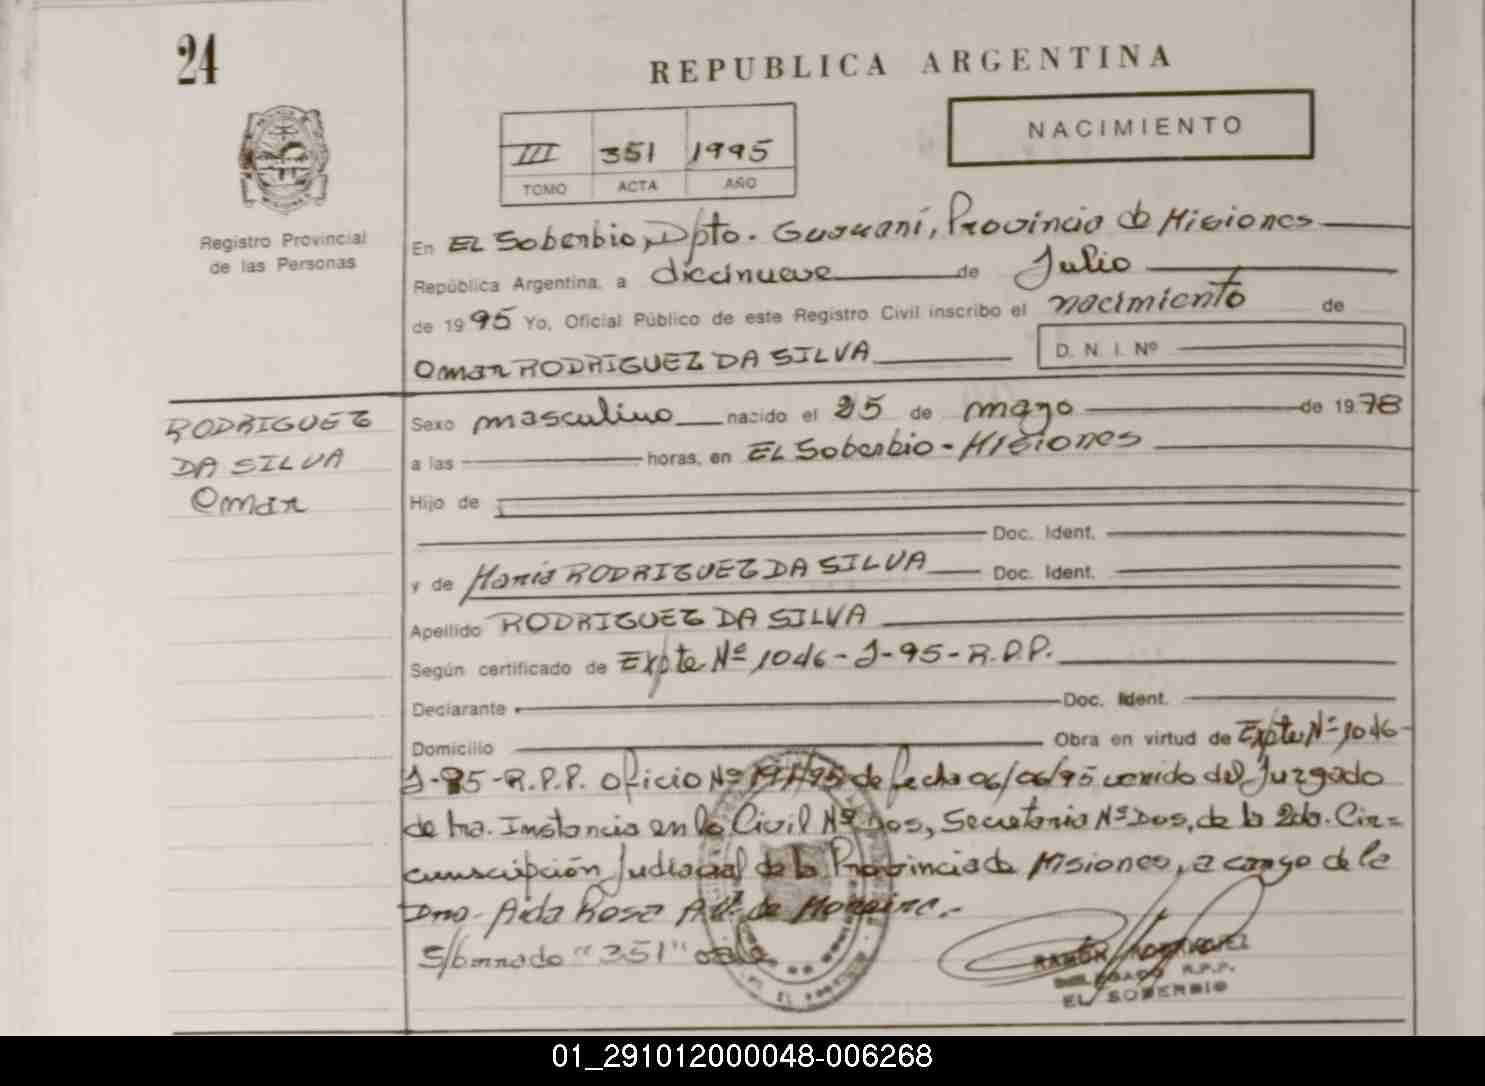 24
REPUBLICA ARGENTINA
NACIMIENTO
III 351 1995
TOMO ACTA AÑO
Registro Provincial
de las Personas
En EL Soberbio, Dpto. Guaraní, Provincia de Misiones
República Argentina, a diecinueve de Julio
de 1995 Yo, Oficial Público de este Registro Civil inscribo el nacimiento de
Omar RODRIGUEZ DA SILVA D. N. I. Nº
RODRIGUEZ
DA SILVA
Omar
Sexo masculino nacido el 25 de mayo de 1978
a las horas, en EL Soberbio - Misiones
Hijo de
Doc. Ident.
y de María RODRIGUEZ DA SILVA Doc. Ident.
Apellido RODRIGUEZ DA SILVA
Según certificado de Expte Nº 1046-J-95-R.P.P.
Declarante Doc. Ident.
Domicilio Obra en virtud de Expte Nº 1046-
J-95-R.P.P. Oficio Nº de fecha 06/06/95 venido del Juzgado
de 1ra. Instancia en lo Civil Nº Dos, Secretaria Nº Dos, de la 2da. Cir=
cunscripción Judicial de la Provincia de Misiones, a cargo de la
Dra. Aida Rosa de Moreira.-
S/borrado "351" vale
RAMÓN RODRIGUEZ
DELEGADO R.P.P.
EL SOBERBIO
01_291012000048-006268